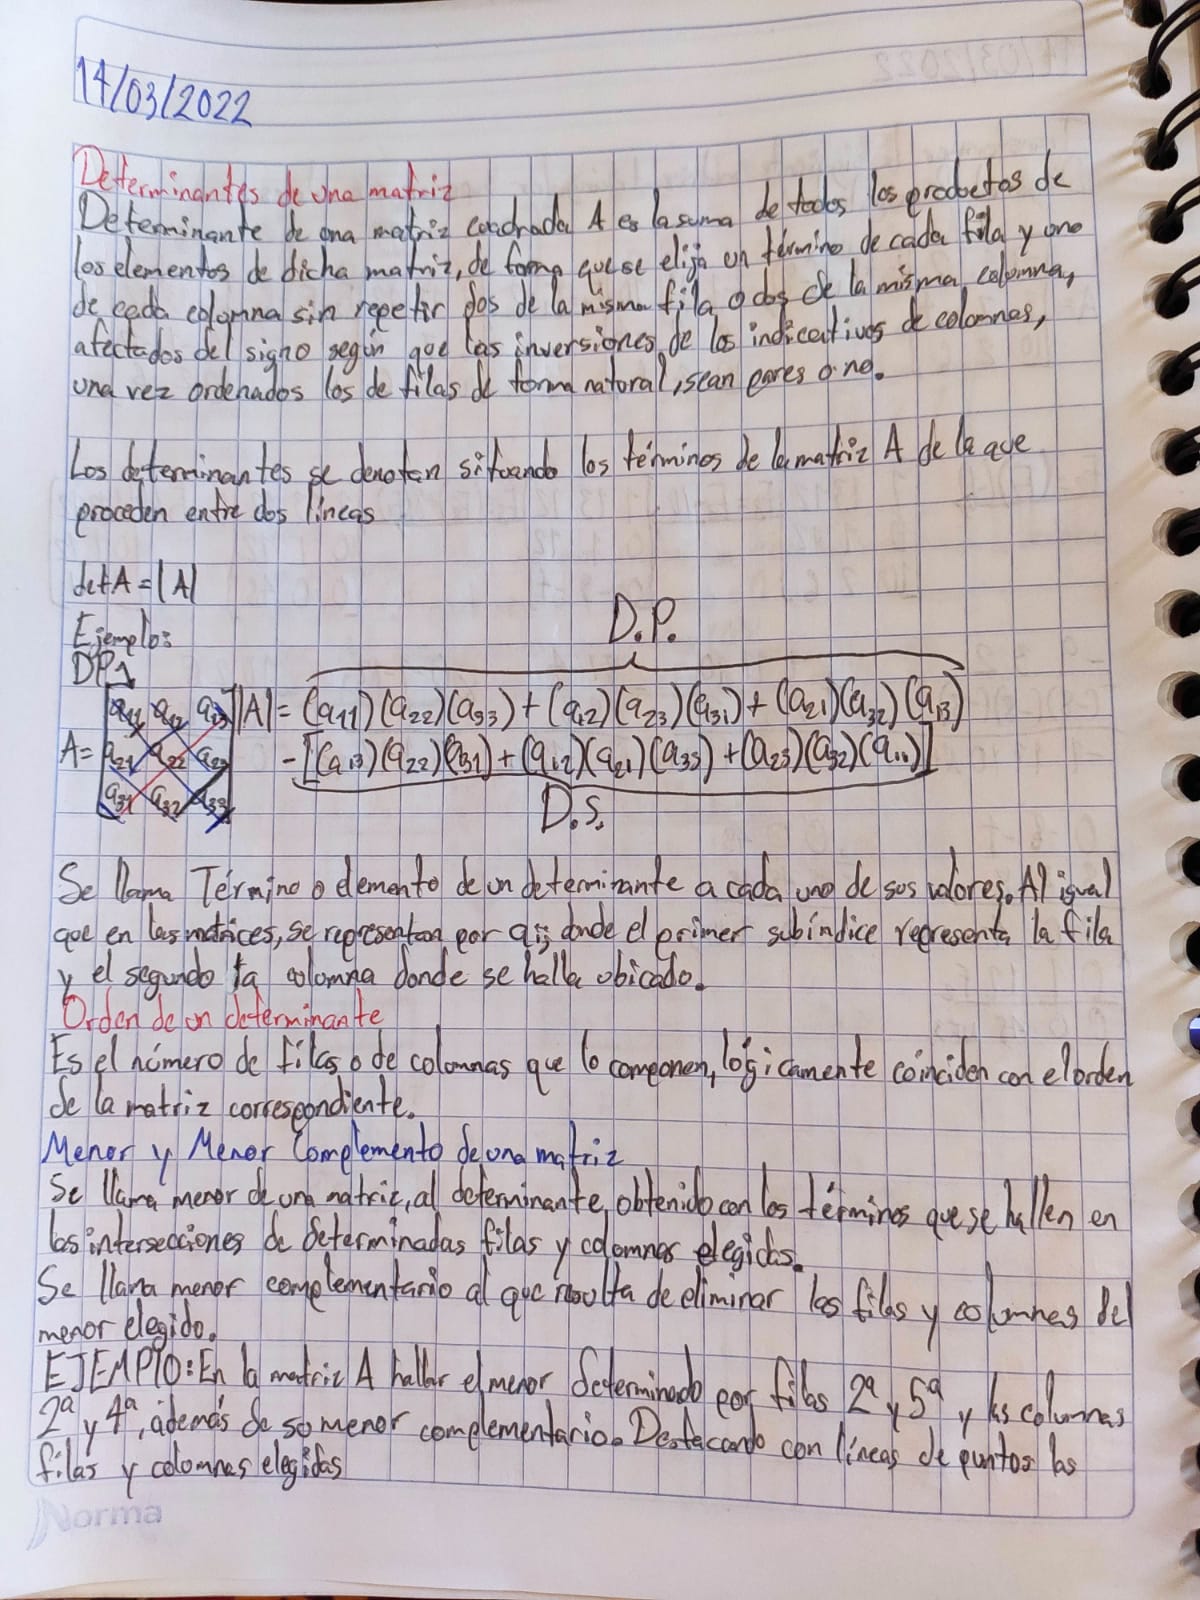 14/03/2022
Determinantes de una matriz
Determinante de una matriz cuadrada A es la suma de todos los productos de
los elementos de dicha matriz, de forma que se elija un término de cada fila y uno
de cada columna sin repetir dos de la misma fila o dos de la misma columna,
afectados del signo según que las inversiones de los indicativos de columnas,
una vez ordenados los de filas de forma natural, sean pares o no.
Los determinantes se denotan situando los términos de la matriz A de la que
proceden entre dos líneas
det A = |A|
Ejemplo:
D.P.
DP
a11 a12 a13 |A| = (a11)(a22)(a33) + (a12)(a23)(a31) + (a21)(a32)(a13)
A = a21 a22 a23 - [(a13)(a22)(a31) + (a12)(a21)(a33) + (a23)(a32)(a11)]
a31 a32 a33
D.S.
Se llama Término o elemento de un determinante a cada uno de sus valores. Al igual
que en las matrices, se representan por aij donde el primer subíndice representa la fila
y el segundo la columna donde se halla ubicado.
Orden de un determinante
Es el número de filas o de columnas que lo componen, lógicamente coinciden con el orden
de la matriz correspondiente.
Menor y Menor Complemento de una matriz
Se llama menor de una matriz, al determinante obtenido con los términos que se hallen en
las intersecciones de determinadas filas y columnas elegidas.
Se llama menor complementario al que resulta de eliminar las filas y columnas del
menor elegido.
EJEMPlO: En la matriz A hallar el menor determinado por filas 2ª y 5ª y las columnas
2ª y 4ª, además de so menor complementario. Destacando con líneas de puntos las
filas y columnas elegidas
Norma